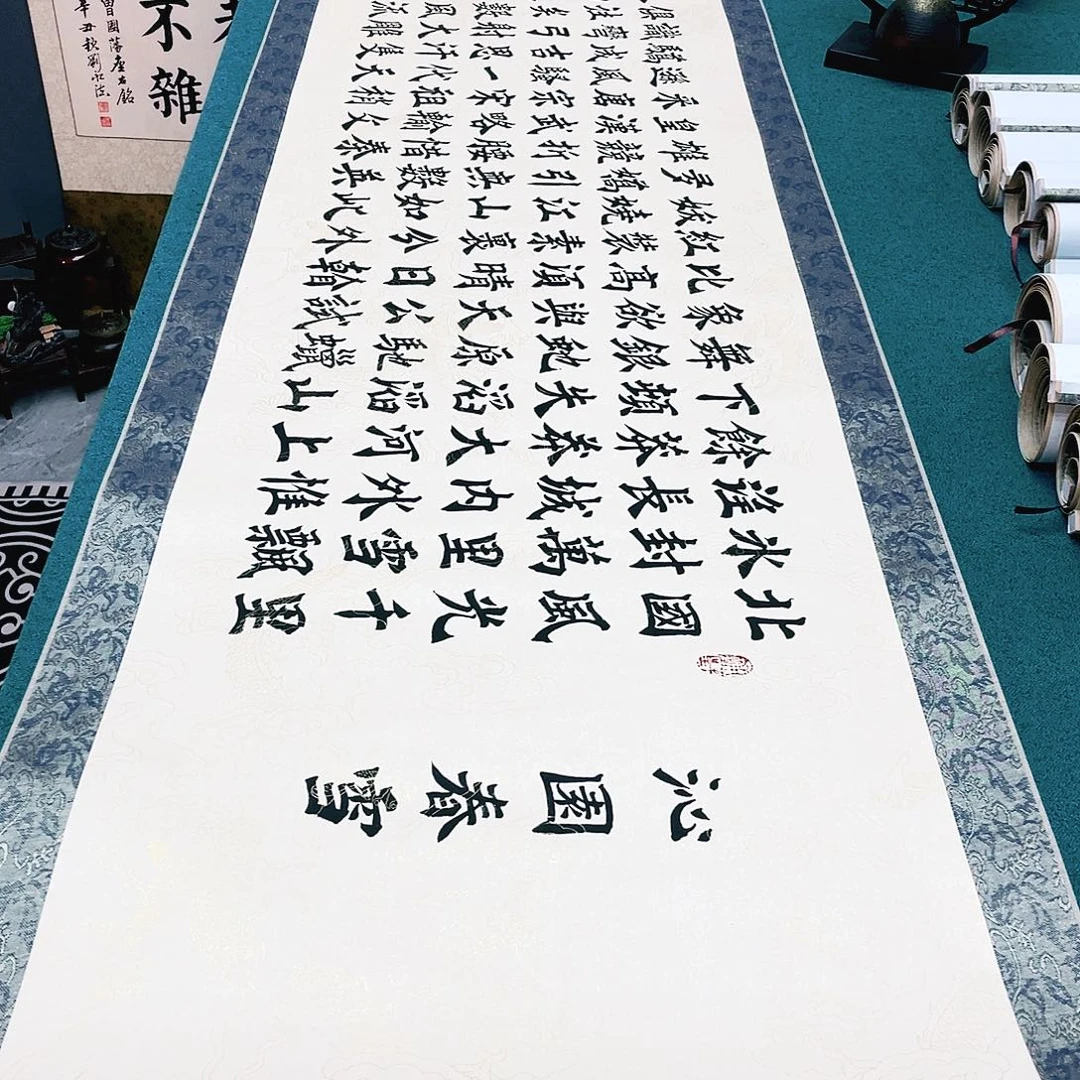 沁園春雪
北國風光千里
冰封萬里雪飄
長城內外惟
餘莽莽大河上
下頓失滔滔山
舞銀蛇原馳蠟
象欲與天公試
比高須晴日
紅裝素裹分外
妖嬈江山如此
多嬌引無數英
雄競折腰惜秦
皇漢武略輸文
采唐宗宋祖稍
遜風騷一代天
驕成吉思汗隻
識彎弓射大雕
俱往矣數風流
不雜
曾國藩座右銘
辛丑秋劉